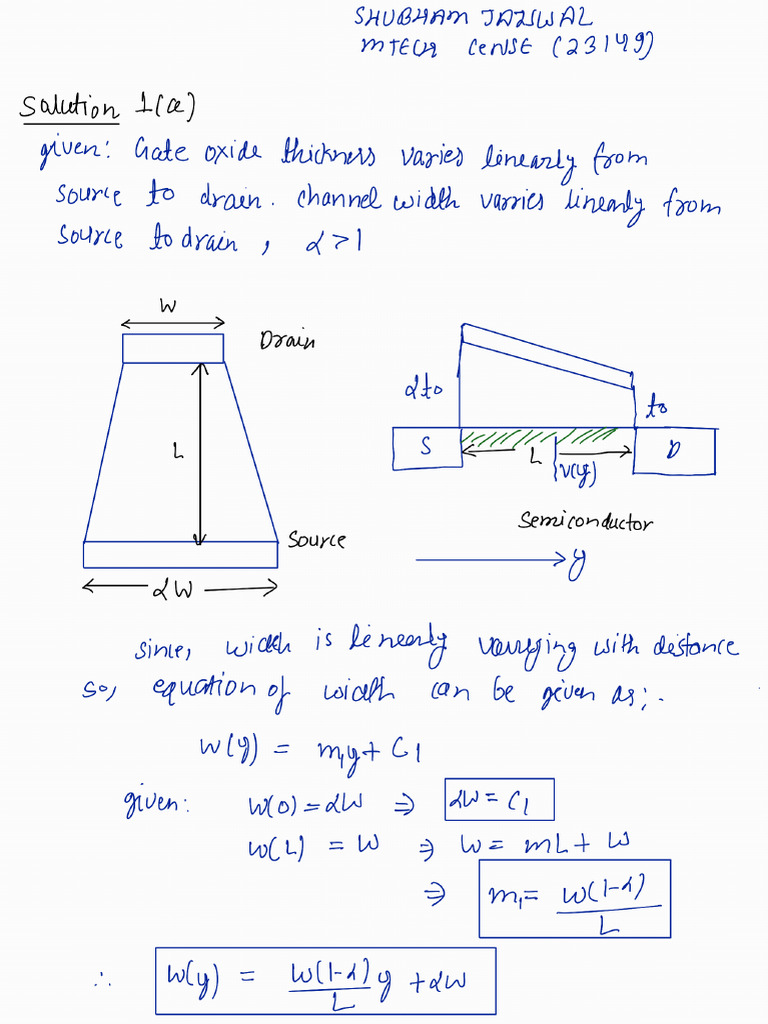 SHUBHAM JAISWAL
MTECH CeNSE (23149)
Solution 1(a)
given: Gate oxide thickness varies linearly from
source to drain. channel width varries linearly from
source to drain, α>1
W
Drain
L
Source
αW
αto
to
S
L
V(y)
D
Semiconductor
y
since, width is linearly varrying with distance
so, equation of width can be given as;.
W(y) = m₁y + C₁
given: W(0) = αW ⇒ αW = C₁
W(L) = W ⇒ W = mL + W
⇒ m₁ = W(1-α)/L
∴ W(y) = W(1-α)/L y + αW